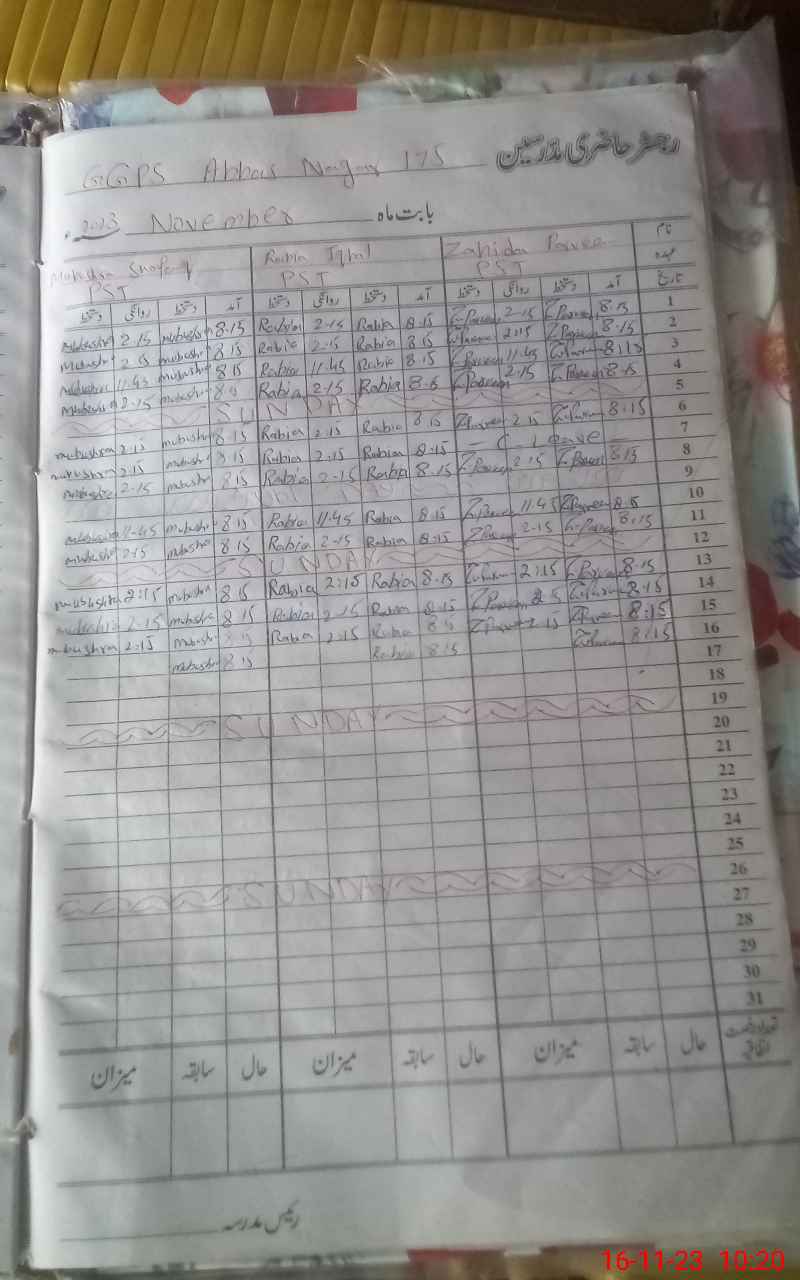 رجسٹر حاضری مدرسین GGPS Abbas Nagar 175
بابت ماہ November 2023ء
نام Zahida Parveen Rabia Iqbal Mubushra
عہدہ PST PST PST
تاریخ آمد دستخط روانگی دستخط آمد دستخط روانگی دستخط آمد دستخط روانگی دستخط
1 8.15 Z.Parveen 2-15 Z.Parveen 8.15 Rabia 2-15 Rabia 8.15 mubushra 2.15 mubushra
2 8.15 Z.Parveen 2:15 Z.Parveen 8.15 Rabia 2-15 Rabia 8.15 mubushra 2.15 mubushra
3 8:15 Z.Parveen 11.45 Z.Parveen 8.15 Rabia 11.45 Rabia 8.15 mubushra 11.45 mubushra
4 8.15 Z.Parveen 2.15 Z.Parveen 8.15 Rabia 2.15 Rabia 8.15 mubushra 2.15 mubushra
5 SUNDAY
6 8:15 Z.Parveen 2.15 Z.Parveen 8.15 Rabia 2.15 Rabia 8.15 mubushra 2.15 mubushra
7 - C - Leave 8.15 Rabia 2.15 Rabia 8.15 mubushra 2.15 mubushra
8 8:15 Z.Parveen 2.15 Z.Parveen 8.15 Rabia 2-15 Rabia 8.15 mubushra 2-15 mubushra
9
10 8.15 Z.Parveen 11.45 Z.Parveen 8.15 Rabia 11.45 Rabia 8.15 mubushra 11-45 mubushra
11 8.15 Z.Parveen 2-15 Z.Parveen 8.15 Rabia 2-15 Rabia 8.15 mubushra 2.15 mubushra
12 SUNDAY
13 8.15 Z.Parveen 2:15 Z.Parveen 8.15 Rabia 2:15 Rabia 8.15 mubushra 2:15 mubushra
14 8.15 Z.Parveen 2.15 Z.Parveen 8.15 Rabia 2.15 Rabia 8.15 mubushra 2-15 mubushra
15 8:15 Z.Parveen 2.15 Z.Parveen 8.15 Rabia 2.15 Rabia 8.15 mubushra 2.15 mubushra
16 8:15 Z.Parveen 8.15 Rabia 8.15 mubushra
17
18
19 SUNDAY
20
21
22
23
24
25
26 SUNDAY
27
28
29
30
31
حال سابقہ میزان حال سابقہ میزان حال سابقہ میزان
رئیس مدرسہ
16-11-23 10:20